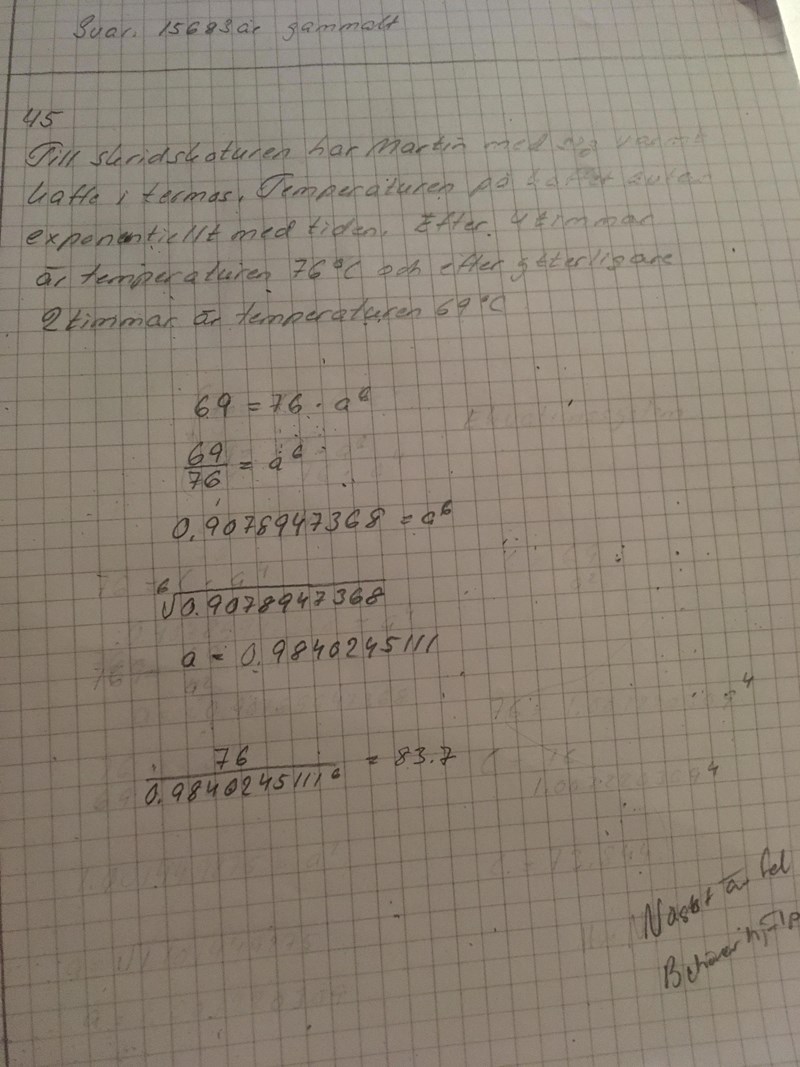 Svar. 15683 år gammalt
45
Till skridskoturen har Martin med sig varmt
kaffe i termos. Temperaturen på kaffet avtar
exponentiellt med tiden. Efter 4 timmar
är temperaturen 76°C och efter ytterligare
2 timmar är temperaturen 69°C
69 = 76 · a⁶
69/76 = a⁶
0.9078947368 = a⁶
⁶√0.9078947368
a = 0.9840245111
76/0.9840245111⁶ = 83.7
Något är fel
Behöver hjälp